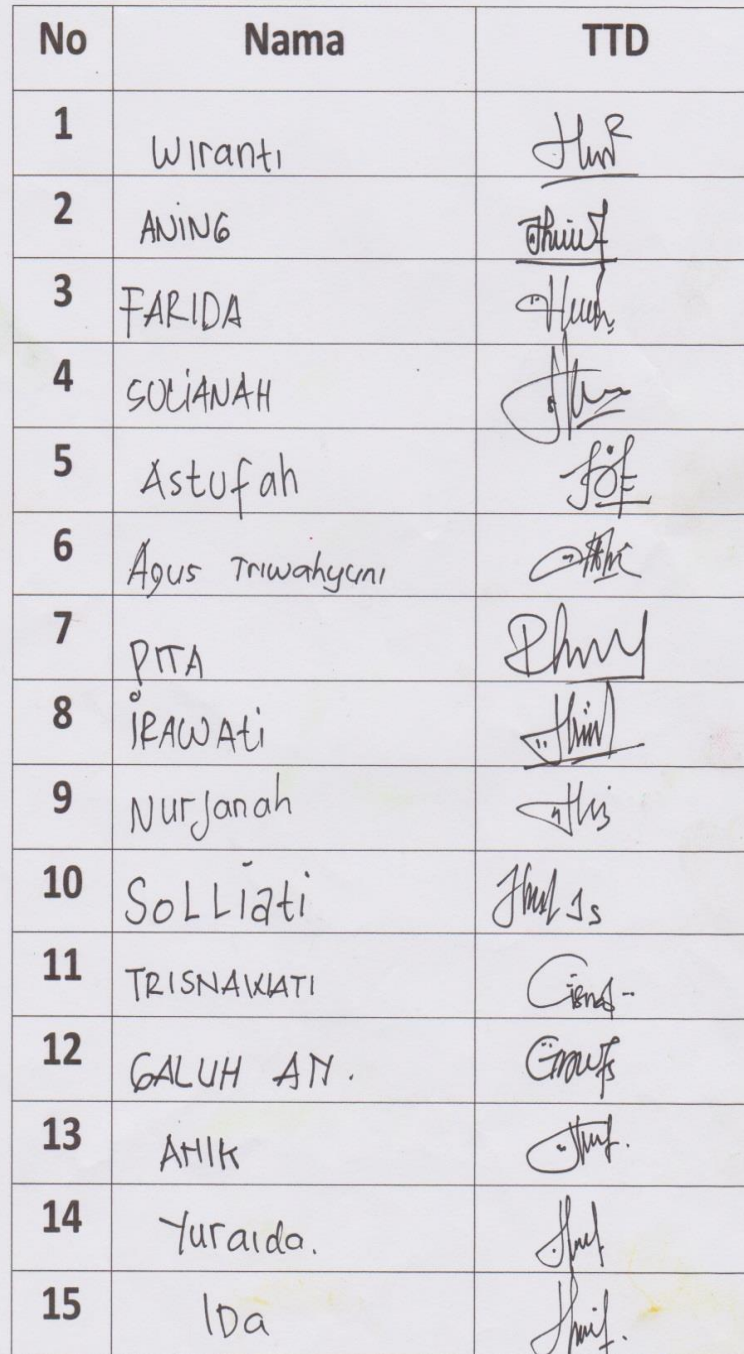 No Nama TTD
1 Wiranti
2 ANING
3 FARIDA
4 SULIANAH
5 Astufah
6 Agus Triwahyuni
7 PITA
8 IRAWAti
9 NurJanah
10 SoLLiati
11 TRISNAWATI
12 GALUH AN.
13 ANIK
14 Yuraida.
15 IDa